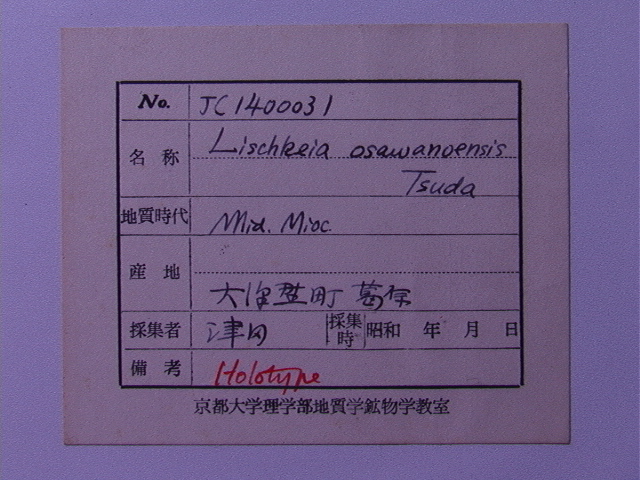 No. JC1400031
名称 Lischkeia osawanoensis
Tsuda
地質時代 Mid. Mioc.
産地
大沢野町 葛原
採集者 津田 採集時 昭和 年 月 日
備考 Holotype
京都大学理学部地質学鉱物学教室